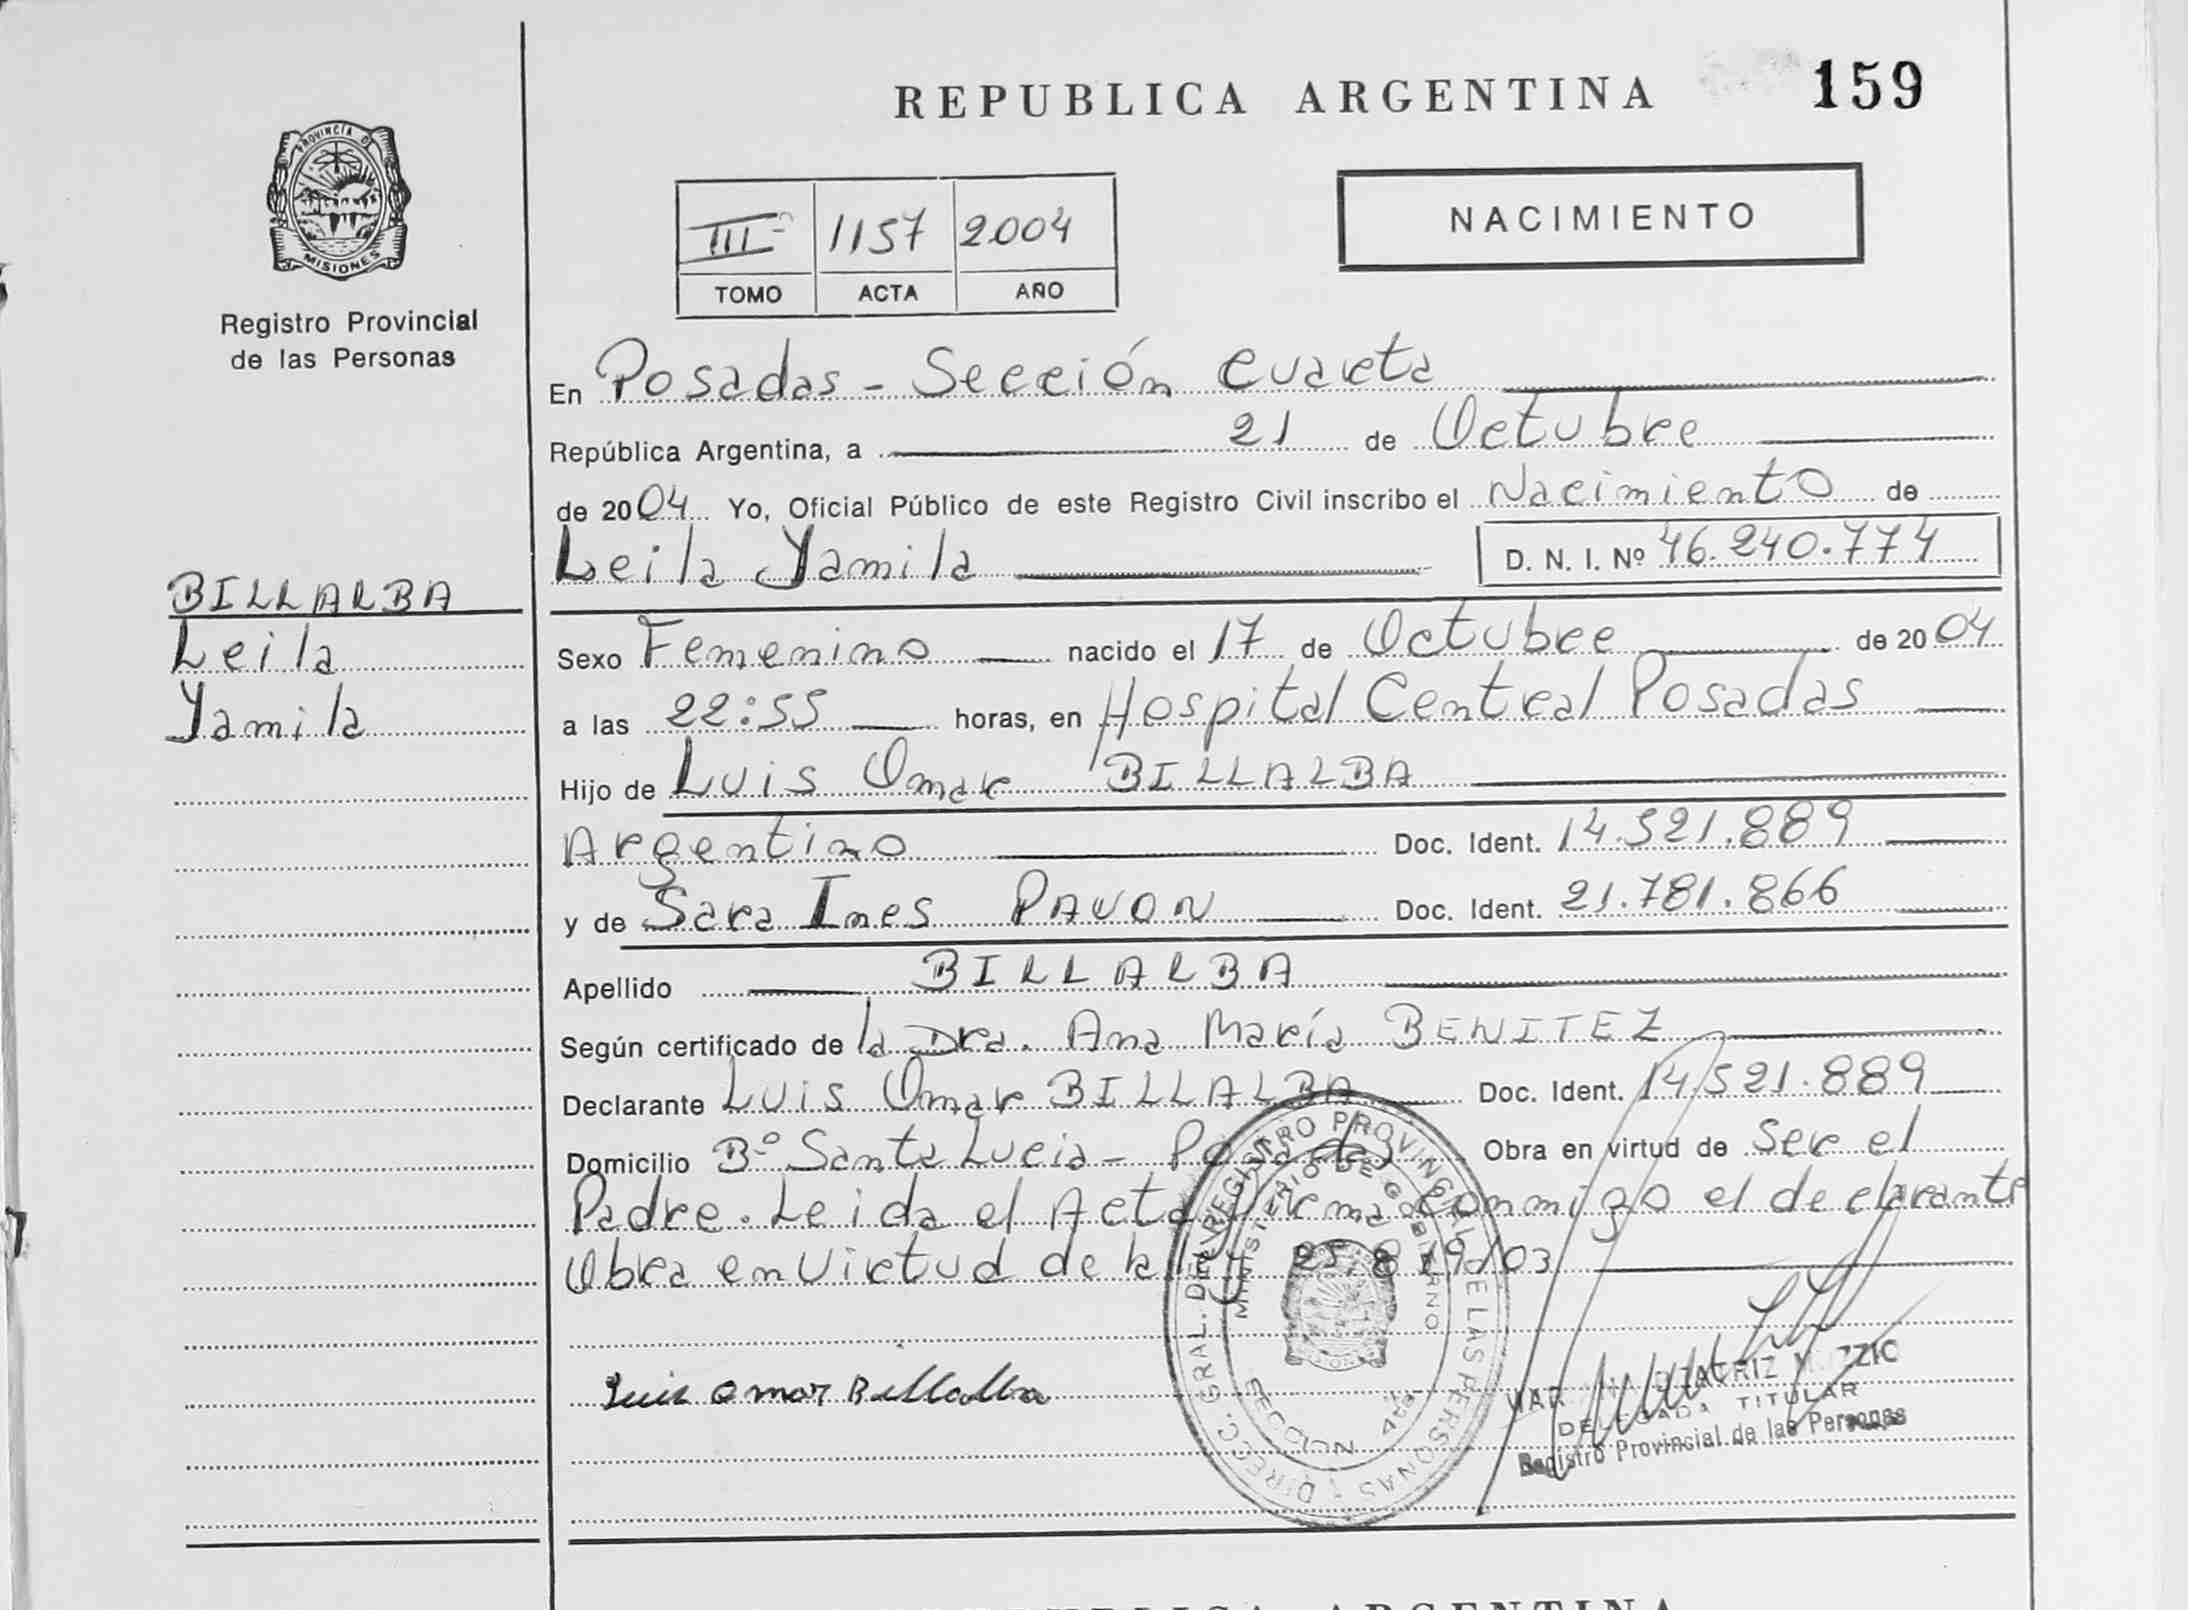 REPUBLICA ARGENTINA 159
PROVINCIA DE
MISIONES
Registro Provincial
de las Personas
III 1157 2004
TOMO ACTA AÑO
NACIMIENTO
En Posadas - Sección Cuarta
República Argentina, a 21 de Octubre
de 2004 Yo, Oficial Público de este Registro Civil inscribo el Nacimiento de
Leila Yamila D. N. I. Nº 46.240.774
BILLALBA
Leila
Yamila
Sexo Femenino nacido el 17 de Octubre de 2004
a las 22:55 horas, en Hospital Central Posadas
Hijo de Luis Omar BILLALBA
Argentino Doc. Ident. 14.521.889
y de Sara Ines PAVON Doc. Ident. 21.781.866
Apellido BILLALBA
Según certificado de la Dra. Ana María BENITEZ
Declarante Luis Omar BILLALBA Doc. Ident. 14.521.889
Domicilio Bº Santa Lucia - Posadas Obra en virtud de Ser el
Padre. Leida el Acta firma conmigo el declarante
Obra en Virtud de la ley 25.819/03
Luis Omar Billalba
DIRECC. GRAL. DEL REGISTRO PROVINCIAL DE LAS PERSONAS
MINISTERIO DE GOBIERNO
SECCION 4ta
BEATRIZ
DELEGADA TITULAR
Registro Provincial de las Personas
REPUBLICA ARGENTINA